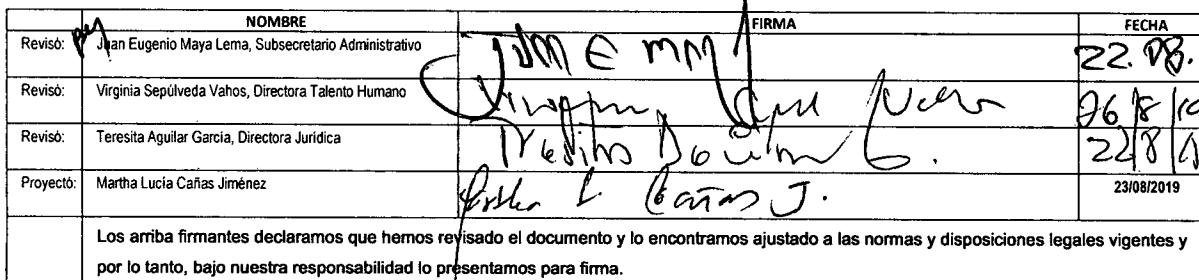 NOMBRE FIRMA FECHA
Revisó: Juan Eugenio Maya Lema, Subsecretario Administrativo 22.08.
Revisó: Virginia Sepúlveda Vahos, Directora Talento Humano
Revisó: Teresita Aguilar García, Directora Jurídica 22/8/
Proyectó: Martha Lucía Cañas Jiménez Cañas J. 23/08/2019
Los arriba firmantes declaramos que hemos revisado el documento y lo encontramos ajustado a las normas y disposiciones legales vigentes y
por lo tanto, bajo nuestra responsabilidad lo presentamos para firma.